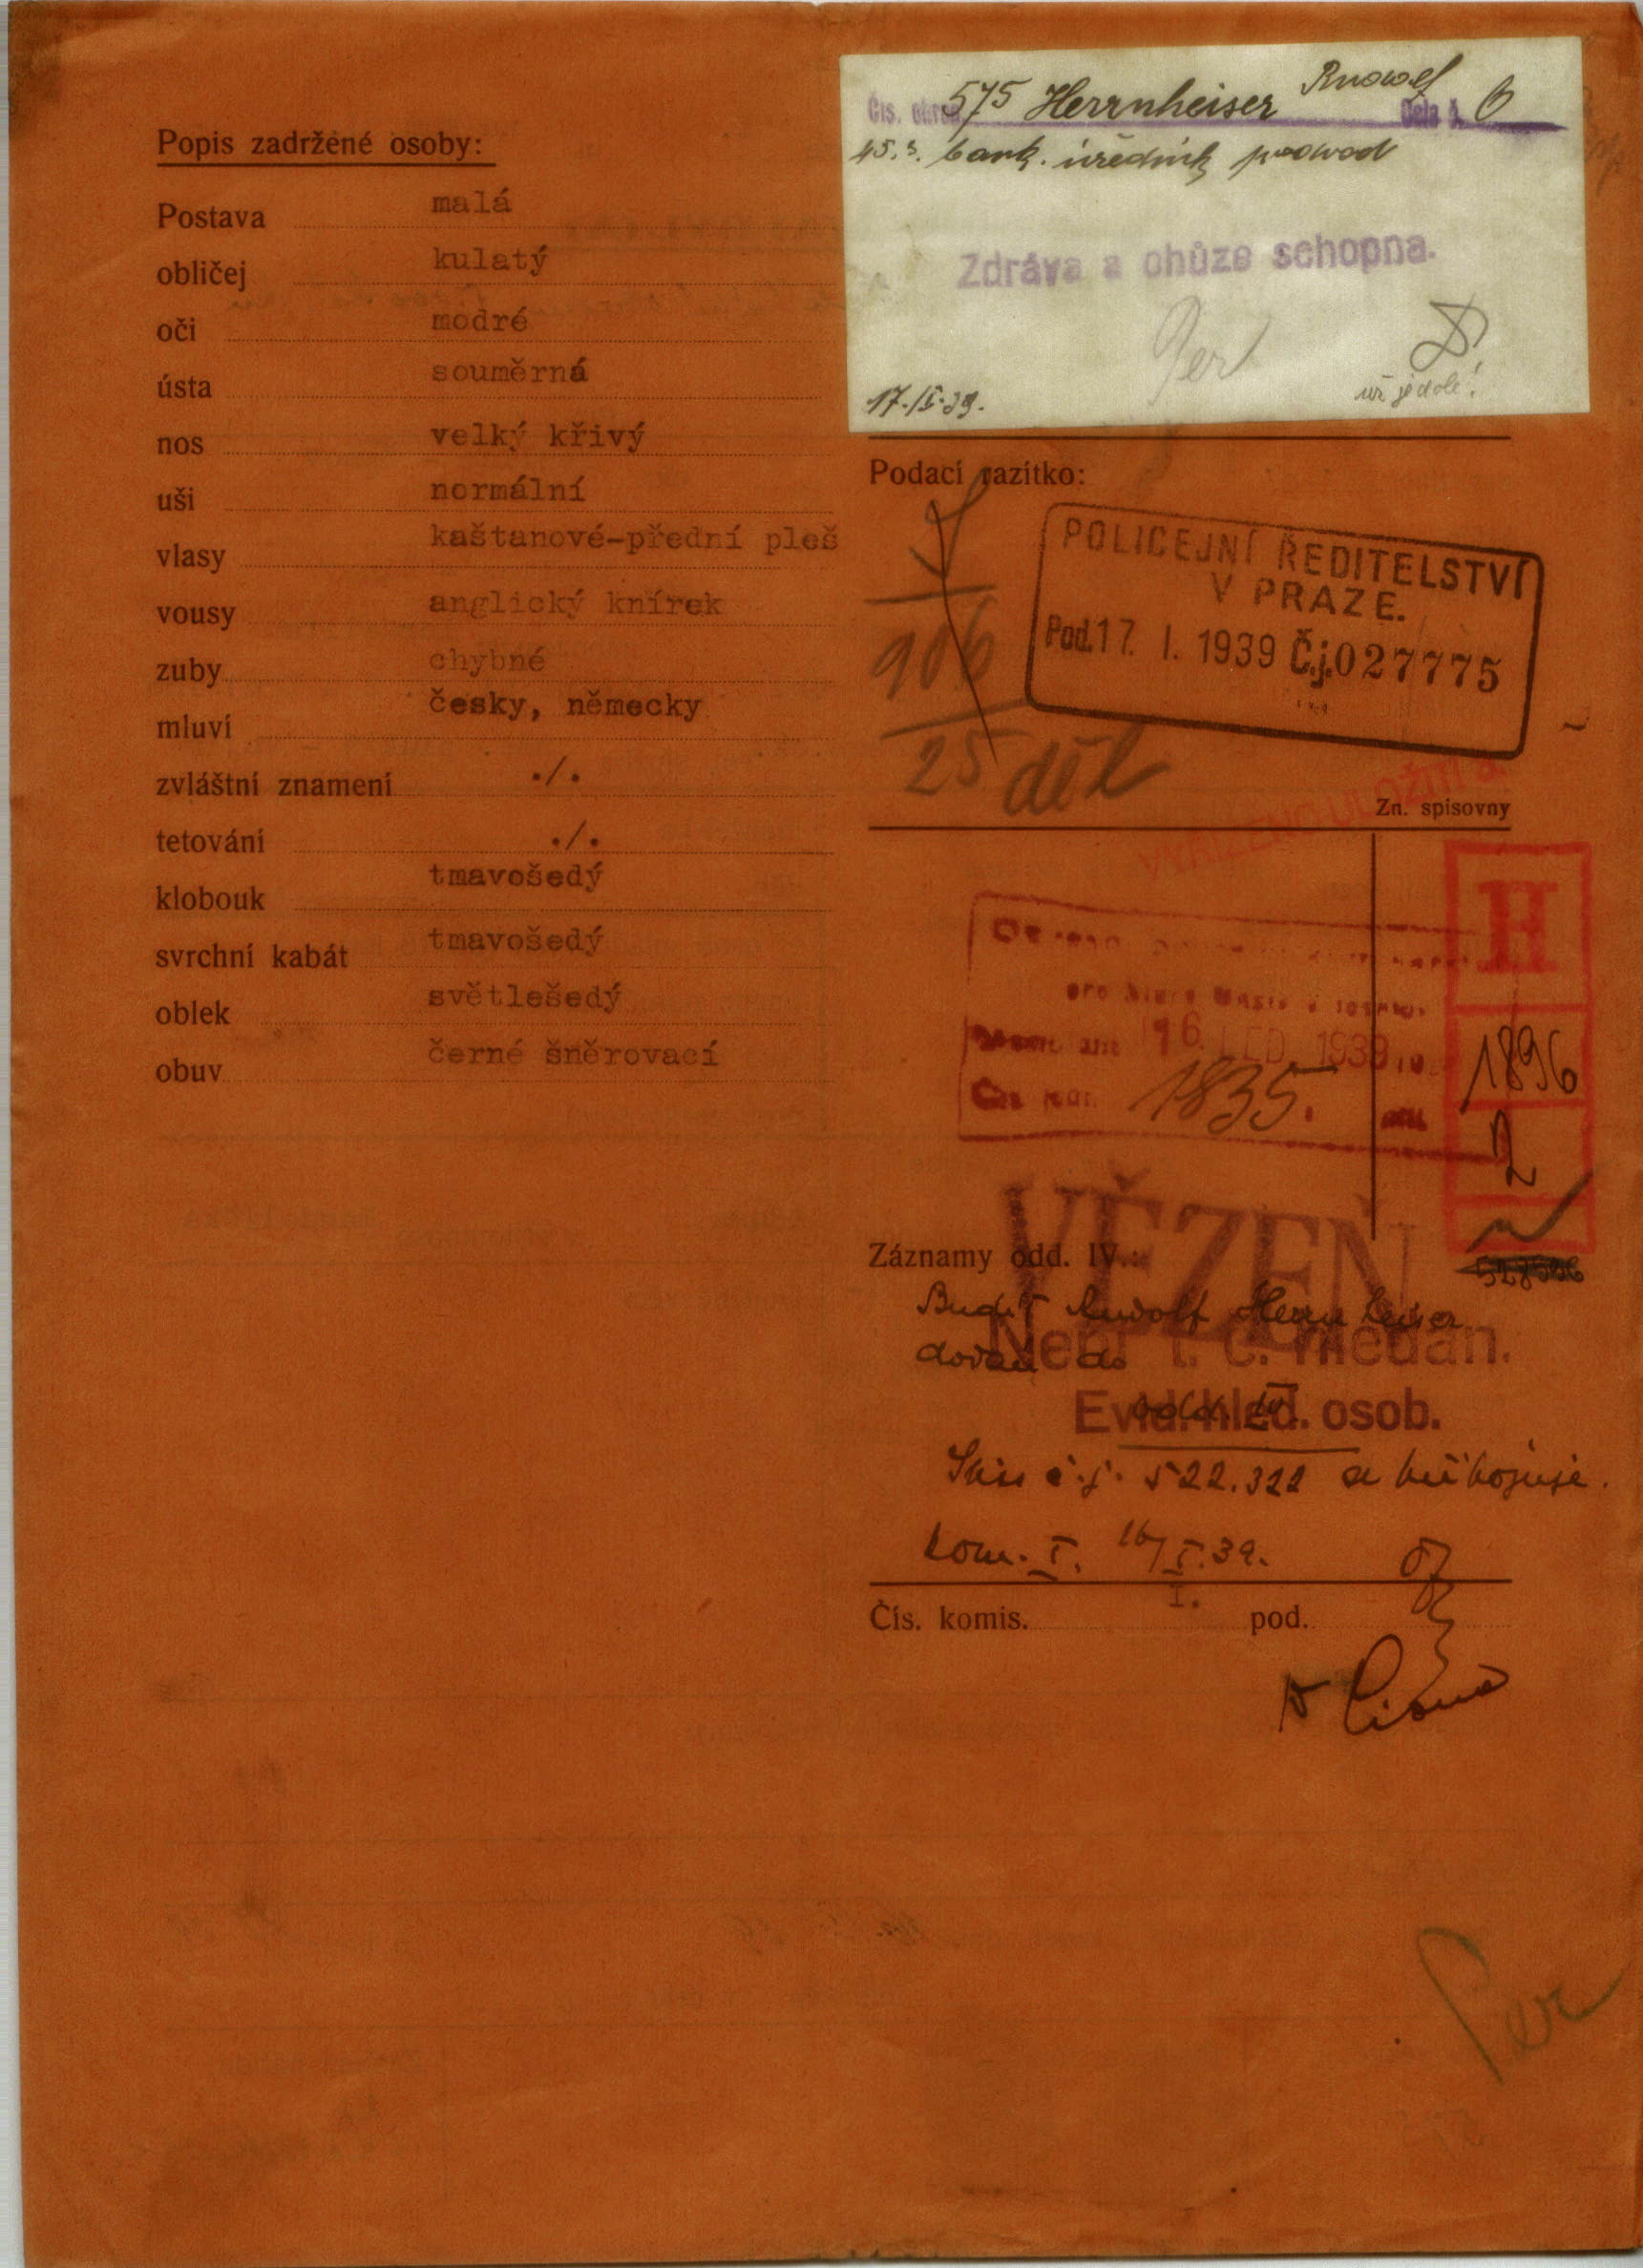 Popis zadržené osoby:
Postava malá
obličej kulatý
oči modré
ústa souměrná
nos velký křivý
uši normální
vlasy kaštanové-přední pleš
vousy anglický knírek
zuby chybné
mluví česky, německy
zvláštní znamení ./.
tetování ./.
klobouk tmavošedý
svrchní kabát tmavošedý
oblek světlešedý
obuv černé šněrovací
Čís. 575 Herrnheiser Rudolf Cela č. 6
45 r. bank. úředník podvod
Zdráva a chůze schopna.
Per
už jedole!
17./I.39.
Podací razítko:
POLICEJNÍ ŘEDITELSTVÍ
V PRAZE.
Pod. 17. I. 1939 Č.j. 027775
906
25 děl
VYŘÍZENO ULOŽITI
Zn. spisovny
H
1896
2
pro
16. LED. 1939
Čís. 1835.
VĚZEŇ
Záznamy odd. IV.:
528596
Budiž Rudolf Herrnheiser
dodán do
Není t. č. hledán.
odd. IV.
Evid. hled. osob.
Spis č.j. 522.322 se připojuje.
kom. I. 16/I.39.
Čís. komis. I. pod.
Per